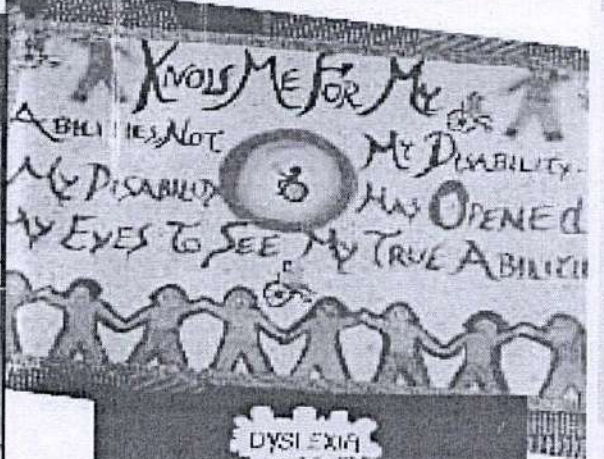 KNOW ME FOR MY
ABILITIES, NOT
MY DISABILITY
MY DISABILITY
HAS OPENEd
MY EYES TO SEE MY TRUE ABILITI
DYSLEXIA